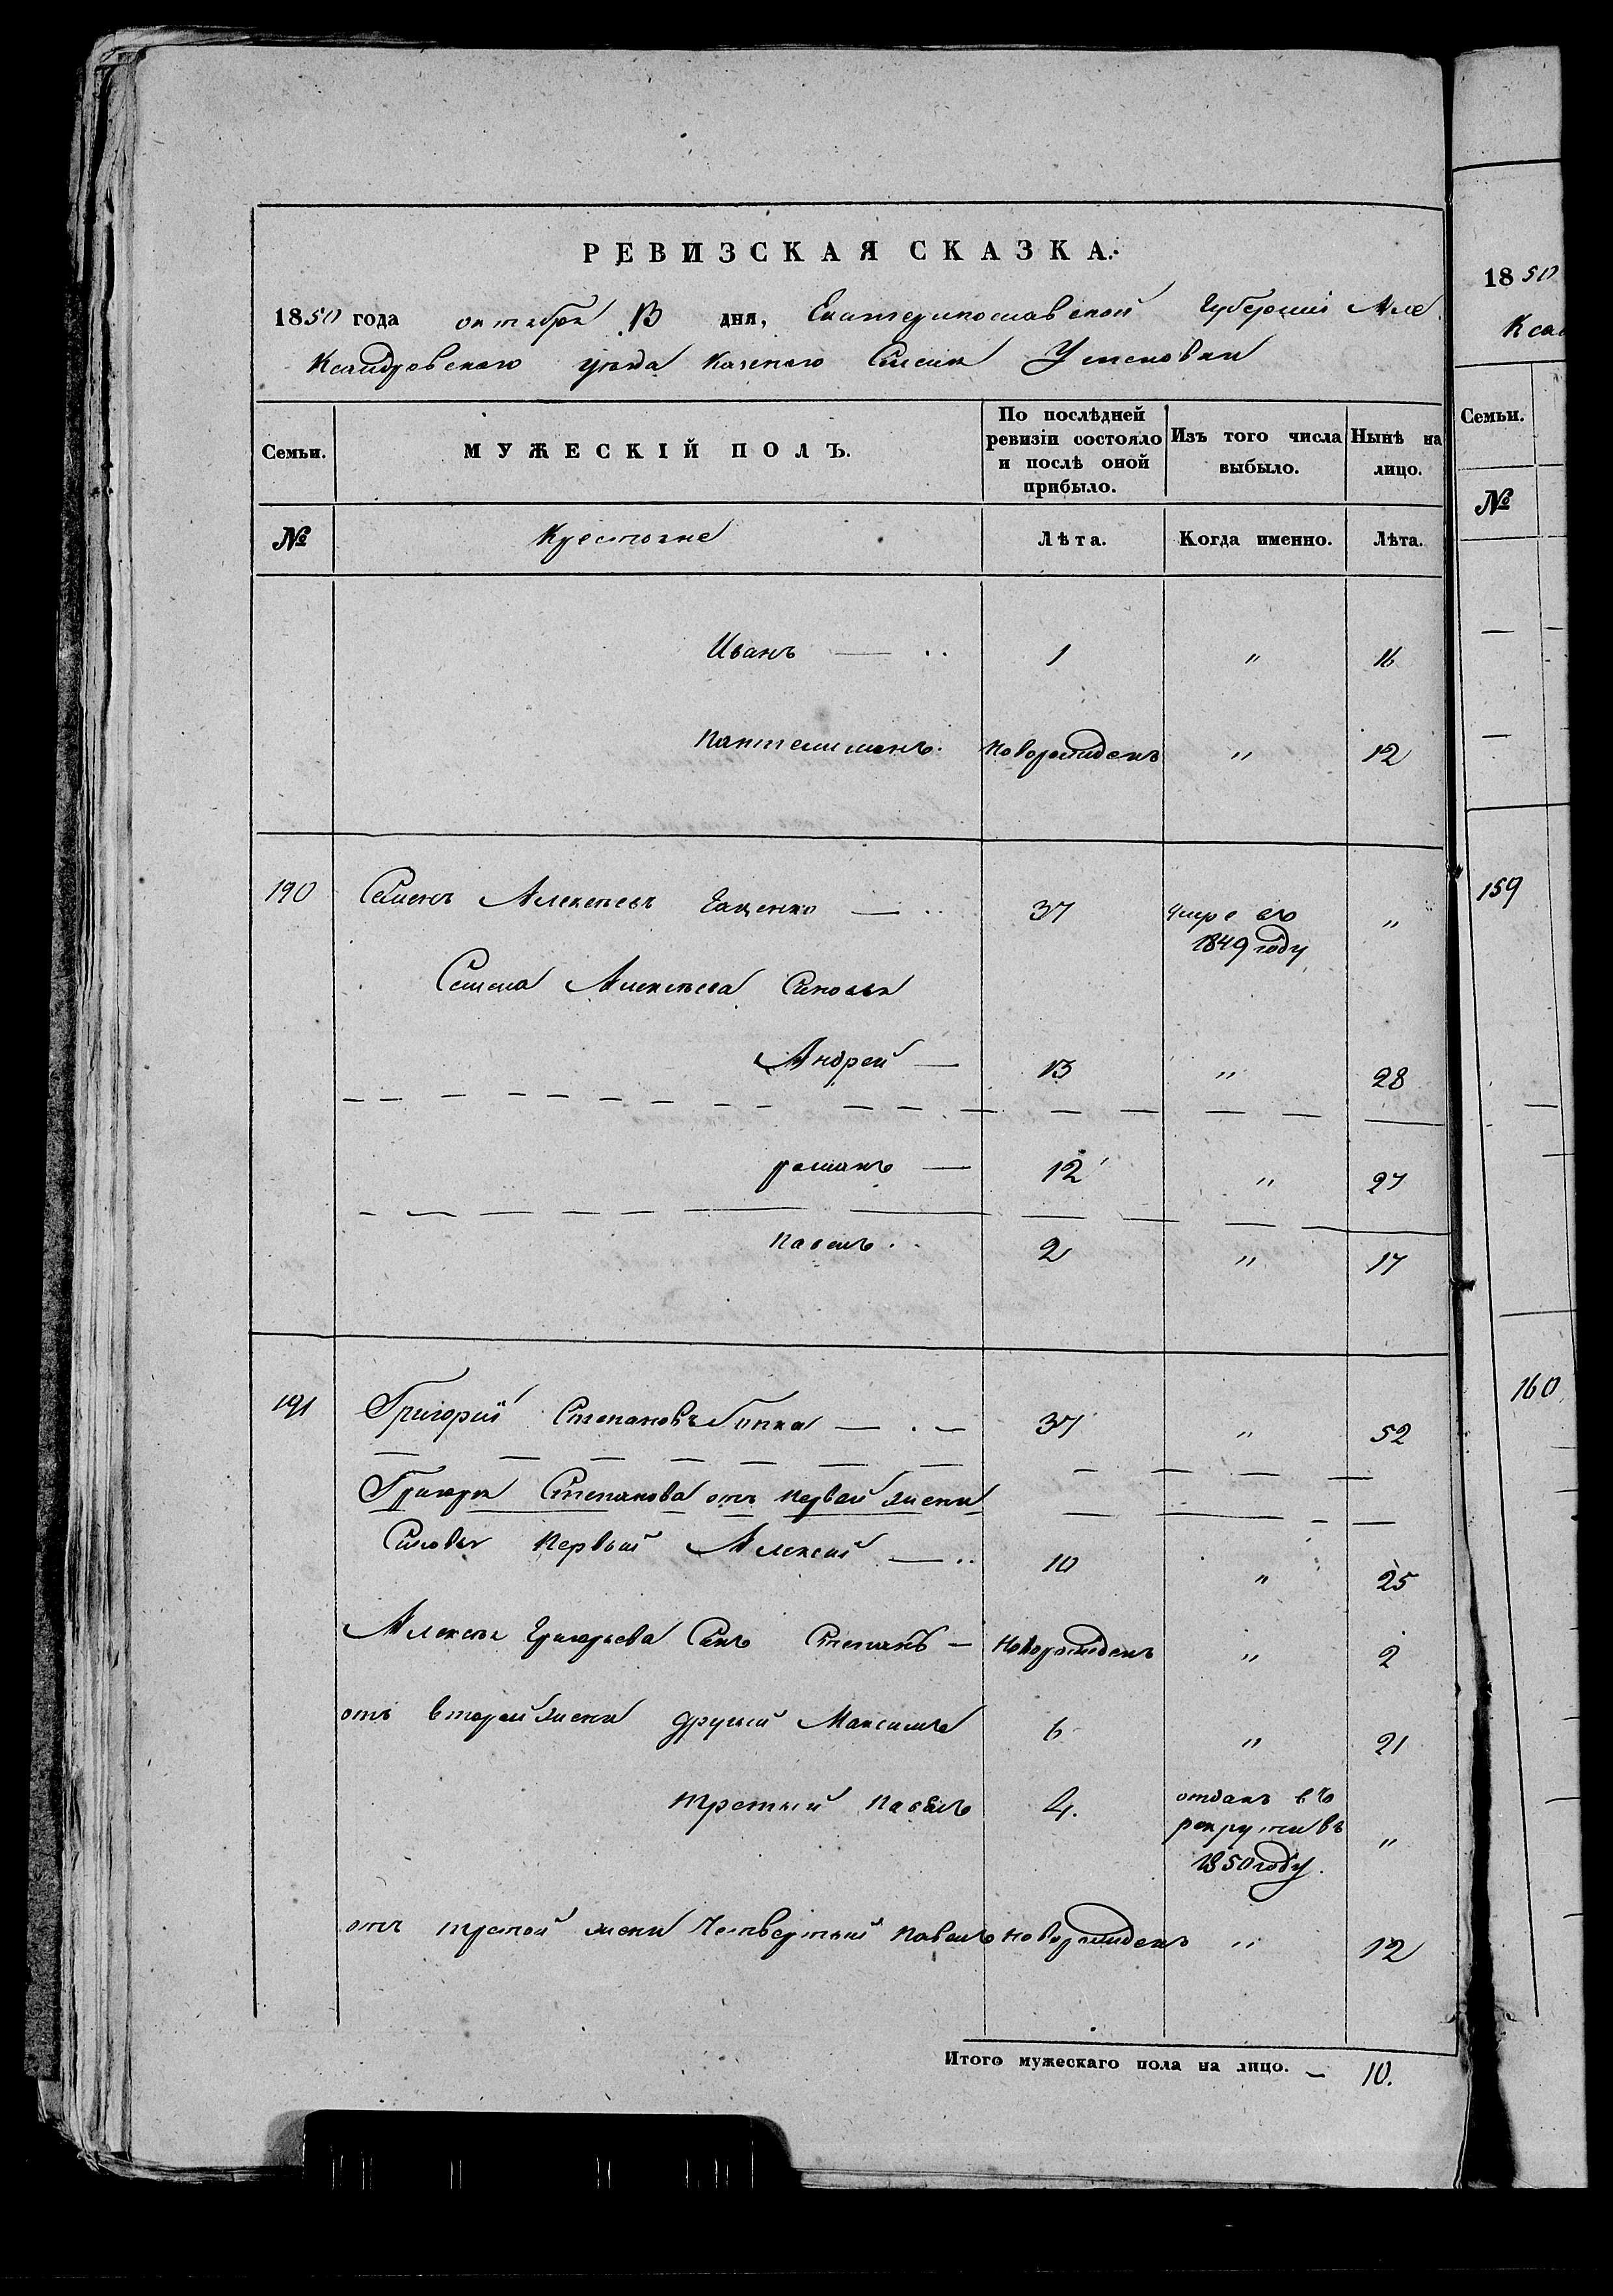 РЕВИЗСКАЯ СКАЗКА.
1850 года октября 13 дня, Екатеринославской Губернии Але
ксандровского уезда Казеного Селения Успеновки
Семьи. МУЖЕСКІЙ ПОЛЪ. По послѣдней ревизіи состояло и послѣ оной прибыло. Изъ того числа выбыло. Нынѣ на лицо.
№ Крестьяне Лѣта. Когда именно. Лѣта.
Иванъ — 1 " 16
Пантелимонъ. новорожденъ " 12
190 Семенъ Алексеевъ — 37 умре въ 1849 году "
Семена Алексеева Сыновья
Андрей — 13 " 28
романъ — 12 " 27
Павелъ 2 " 17
191 Григорий Степановъ — 37 " 52
Григория Степанова отъ первой жены
Сыновья Первый Алексей — 10 " 25
Алексея Григорьева Сынъ Степанъ — новорожденъ " 2
отъ второй жены другий Максимъ 6 " 21
третий Павелъ 4. отданъ въ рекруты въ 1850 году. "
отъ третой жены Четвертый Павелъ новорожденъ " 12
Итого мужескаго пола на лицо. — 10.
1850
Кса
Семьи.
№
159
160